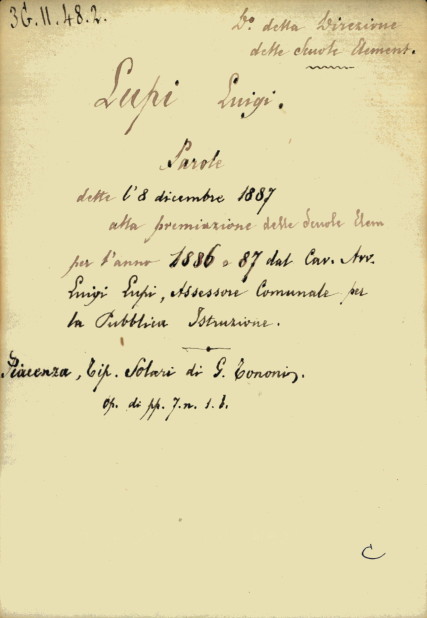 3G.II.48.2.
Do. della Direzione
delle Scuole Element.
Lupi Luigi.
Parole
dette l'8 dicembre 1887
alla premiazione delle Scuole Elem
per l'anno 1886 a 87 dal Cav. Avv.
Luigi Lupi, Assessore Comunale per
la Pubblica Istruzione.
Piacenza, Tip. Solari di G. Tononi,
op. di pp. 7. n.
C